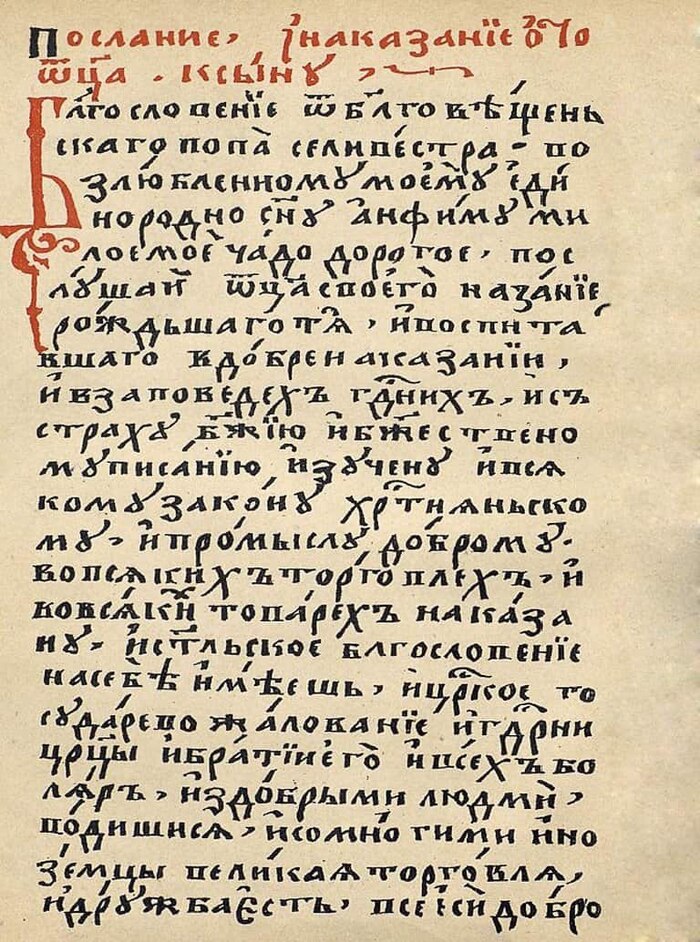 Послание, і҆наказанїе ѿ҆то
ѿц҃а . ксы́нꙋ ,
Бл҃гословенїе ѿ бл҃говѣ́щень
скаго попа̀ селиве́стра · во
злю́бленномꙋ моем̀ꙋ є҆ди́
норо́дно сн҃ꙋ а҆нфи́мꙋ ми
лое моѐ ча́до дорого́е, пос
лꙋ́шай ѿц҃а своего̀ наказа́нїе
ро́ждьшаго тѧ̀, и҆воспита́
вшаго в до́бре наказа́нїи,
и҆ в за́поведехъ гдⷭ҇нихъ, и҆ съ
стра́хꙋ бж҃їю и҆ бж҃ествено
мꙋ писа́нїю и҆зꙋ́ченꙋ и҆ всѧ
комꙋ зако́нꙋ хрⷭ҇тиѧньско
мꙋ, и҆ про́мыслꙋ до́бромꙋ.
во всѧ́кихъ торго́влехъ, и҆
во всѧ́ких това́рехъ нака́за
нꙋ, и҆ ст҃льское бл҃гослове́нїе
на себѣ̀ и҆мѣ́ешь, и҆ црⷭ҇кое го
сꙋда́рево жа́лованїе и҆ гдⷭ҇рни
црⷭ҇цы и҆ бра́тїи его̀ и҆ всехъ бо
лѧ́ръ, и҆ з до́брыми людмѝ,
во́дишисѧ, и҆ со мно́гими и҆но
зе́мцы вели́каѧ торго́влѧ,
и҆ дрꙋ́жба є҆сть, все есѝ добро